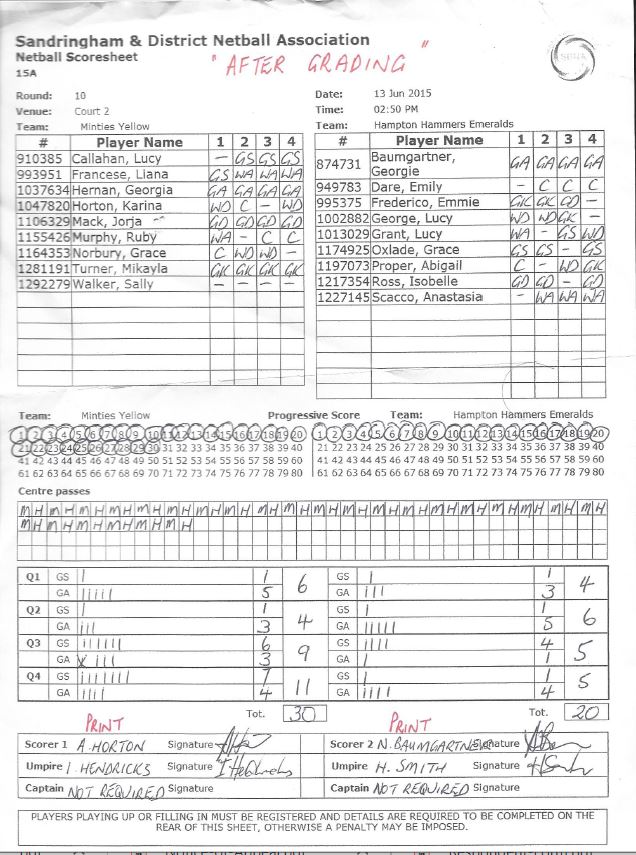 Sandringham & District Netball Association
Netball Scoresheet
15A
" AFTER GRADING "
Round: 10
Venue: Court 2
Date: 13 Jun 2015
Time: 02:50 PM
Team: Minties Yellow
Team: Hampton Hammers Emeralds
# Player Name 1 2 3 4
910385 Callahan, Lucy – GS GS GS
993951 Francese, Liana GS WA WA WA
1037634 Hernan, Georgia GA GA GA GA
1047820 Horton, Karina WD C – WD
1106329 Mack, Jorja GD GD GD GD
1155426 Murphy, Ruby WA – C C
1164353 Norbury, Grace C WD WD –
1281191 Turner, Mikayla GK GK GK GK
1292279 Walker, Sally – – – –
# Player Name 1 2 3 4
874731 Baumgartner, Georgie GA GA GA GA
949783 Dare, Emily – C C C
995375 Frederico, Emmie GK GK GD –
1002882 George, Lucy WD WD GK –
1013029 Grant, Lucy WA – GS WD
1174925 Oxlade, Grace GS GS – GS
1197073 Proper, Abigail C – WD GK
1217354 Ross, Isobelle GD GD – GD
1227145 Scacco, Anastasia – WA WA WA
Team: Minties Yellow Progressive Score Team: Hampton Hammers Emeralds
1 2 3 4 5 6 7 8 9 10 11 12 13 14 15 16 17 18 19 20 1 2 3 4 5 6 7 8 9 10 11 12 13 14 15 16 17 18 19 20
21 22 23 24 25 26 27 28 29 30 31 32 33 34 35 36 37 38 39 40 21 22 23 24 25 26 27 28 29 30 31 32 33 34 35 36 37 38 39 40
41 42 43 44 45 46 47 48 49 50 51 52 53 54 55 56 57 58 59 60 41 42 43 44 45 46 47 48 49 50 51 52 53 54 55 56 57 58 59 60
61 62 63 64 65 66 67 68 69 70 71 72 73 74 75 76 77 78 79 80 61 62 63 64 65 66 67 68 69 70 71 72 73 74 75 76 77 78 79 80
Centre passes
M H M H M H M H M H M H M H M H M H M H M H M H M H M H M H M H M H M H M H M H
M H M H M H M H M H M H
Q1 GS I 1 6 GS I 1 4
GA IIIII 5 GA III 3
Q2 GS I 1 4 GS I 1 6
GA III 3 GA IIIII 5
Q3 GS IIIIII 6 9 GS IIII 4 5
GA X III 3 GA I 1
Q4 GS IIIIIII 7 11 GS I 1 5
GA IIII 4 GA IIII 4
Tot. 30 Tot. 20
PRINT PRINT
Scorer 1 A. HORTON Signature Scorer 2 N. BAUMGARTNER Signature
Umpire I. HENDRICKS Signature Umpire H. SMITH Signature
Captain NOT REQUIRED Signature Captain NOT REQUIRED Signature
PLAYERS PLAYING UP OR FILLING IN MUST BE REGISTERED AND DETAILS ARE REQUIRED TO BE COMPLETED ON THE
REAR OF THIS SHEET, OTHERWISE A PENALTY MAY BE IMPOSED.